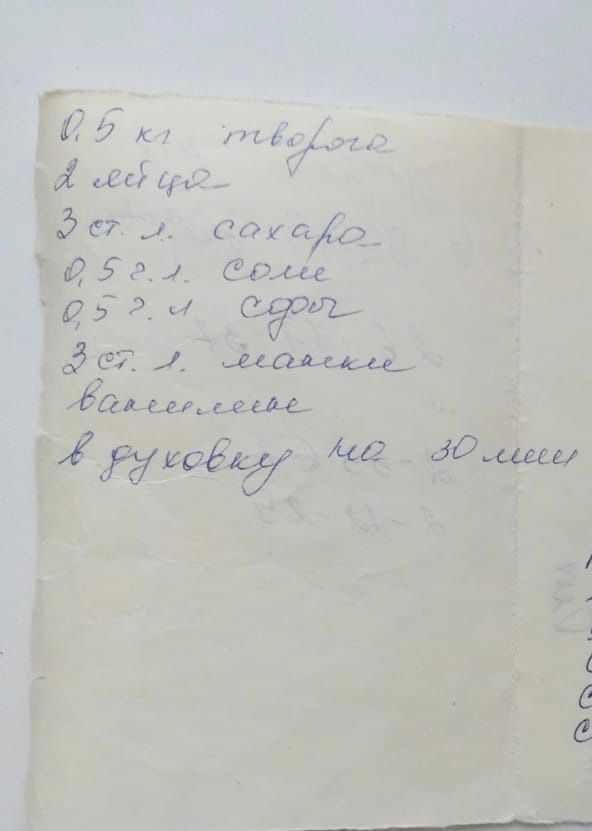 0,5 кг творога
2 яйца
3 ст. л. сахара
0,5 ч. л. соли
0,5 ч. л соды
3 ст. л. манки
ванилин
в духовку на 30 мин